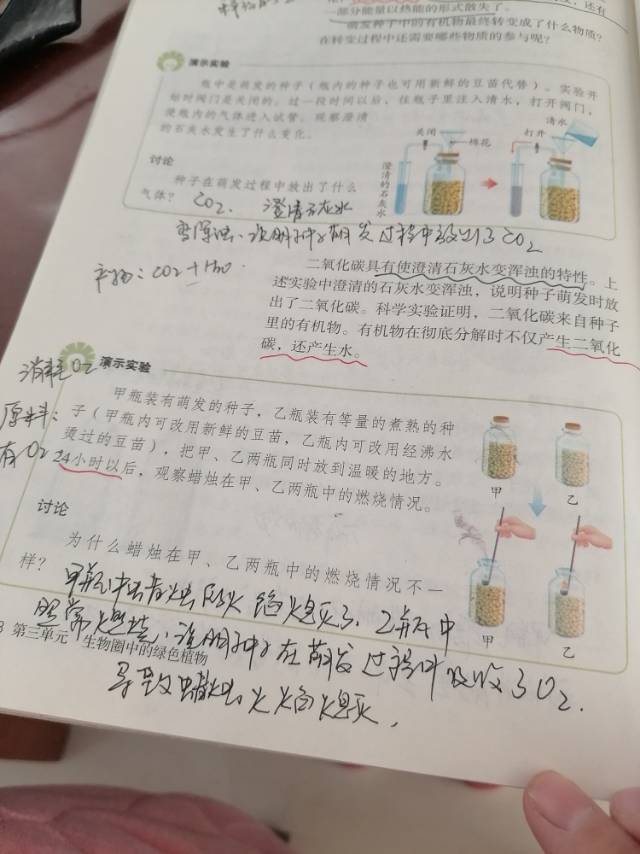 部分能量以热能的形式散失了。
萌发种子中的有机物最终转变成了什么物质?
在转变过程中还需要哪些物质的参与呢?
演示实验
瓶中是萌发的种子(瓶内的种子也可用新鲜的豆苗代替)。实验开
始时阀门是关闭的。过一段时间以后,往瓶子里注入清水,打开阀门,
使瓶内的气体进入试管。观察澄清
的石灰水发生了什么变化。
清水
关闭
打开
棉花
澄清的石灰水
讨论
种子在萌发过程中放出了什么
气体? CO2. 澄清石灰水
变浑浊、说明种子萌发过程中放出了CO2
产物:CO2+H2O
二氧化碳具有使澄清石灰水变浑浊的特性。上
述实验中澄清的石灰水变浑浊,说明种子萌发时放
出了二氧化碳。科学实验证明,二氧化碳来自种子
里的有机物。有机物在彻底分解时不仅产生二氧化
碳,还产生水。
消耗O2
演示实验
原料:
有O2
甲瓶装有萌发的种子,乙瓶装有等量的煮熟的种
子(甲瓶内可改用新鲜的豆苗,乙瓶内可改用经沸水
烫过的豆苗),把甲、乙两瓶同时放到温暖的地方。
24小时以后,观察蜡烛在甲、乙两瓶中的燃烧情况。
甲
乙
讨论
为什么蜡烛在甲、乙两瓶中的燃烧情况不一
样?
甲瓶中蜡烛火焰熄灭了,乙瓶中
照常燃烧,说明种子在萌发过程中吸收了O2.
导致蜡烛火焰熄灭,
甲
乙
8 第三单元 生物圈中的绿色植物